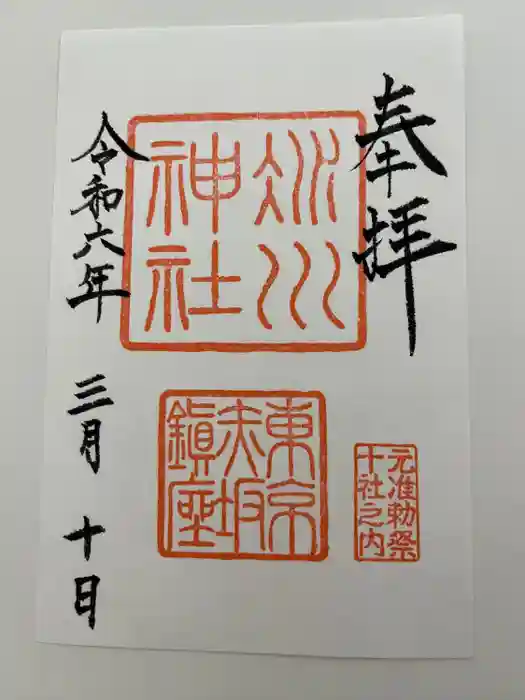 奉拝
氷川
神社
東京
赤坂
鎮座
元准勅祭
十社之内
令和六年 三月 十日